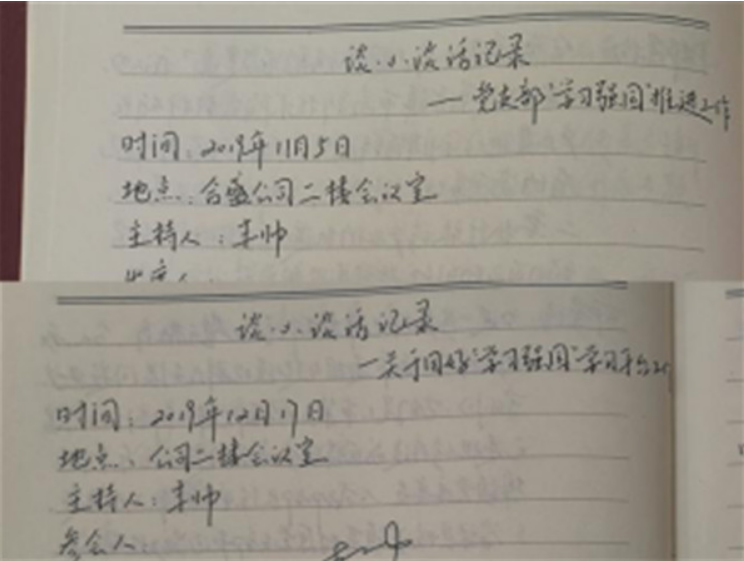 谈心谈话记录
—党支部“学习强国”推进工作
时间：2019年11月5日
地点：合盛公司二楼会议室
主持人：李帅
谈心谈话记录
—关于用好“学习强国”学习平台
时间：2019年12月17日
地点：公司二楼会议室
主持人：李帅
参会人